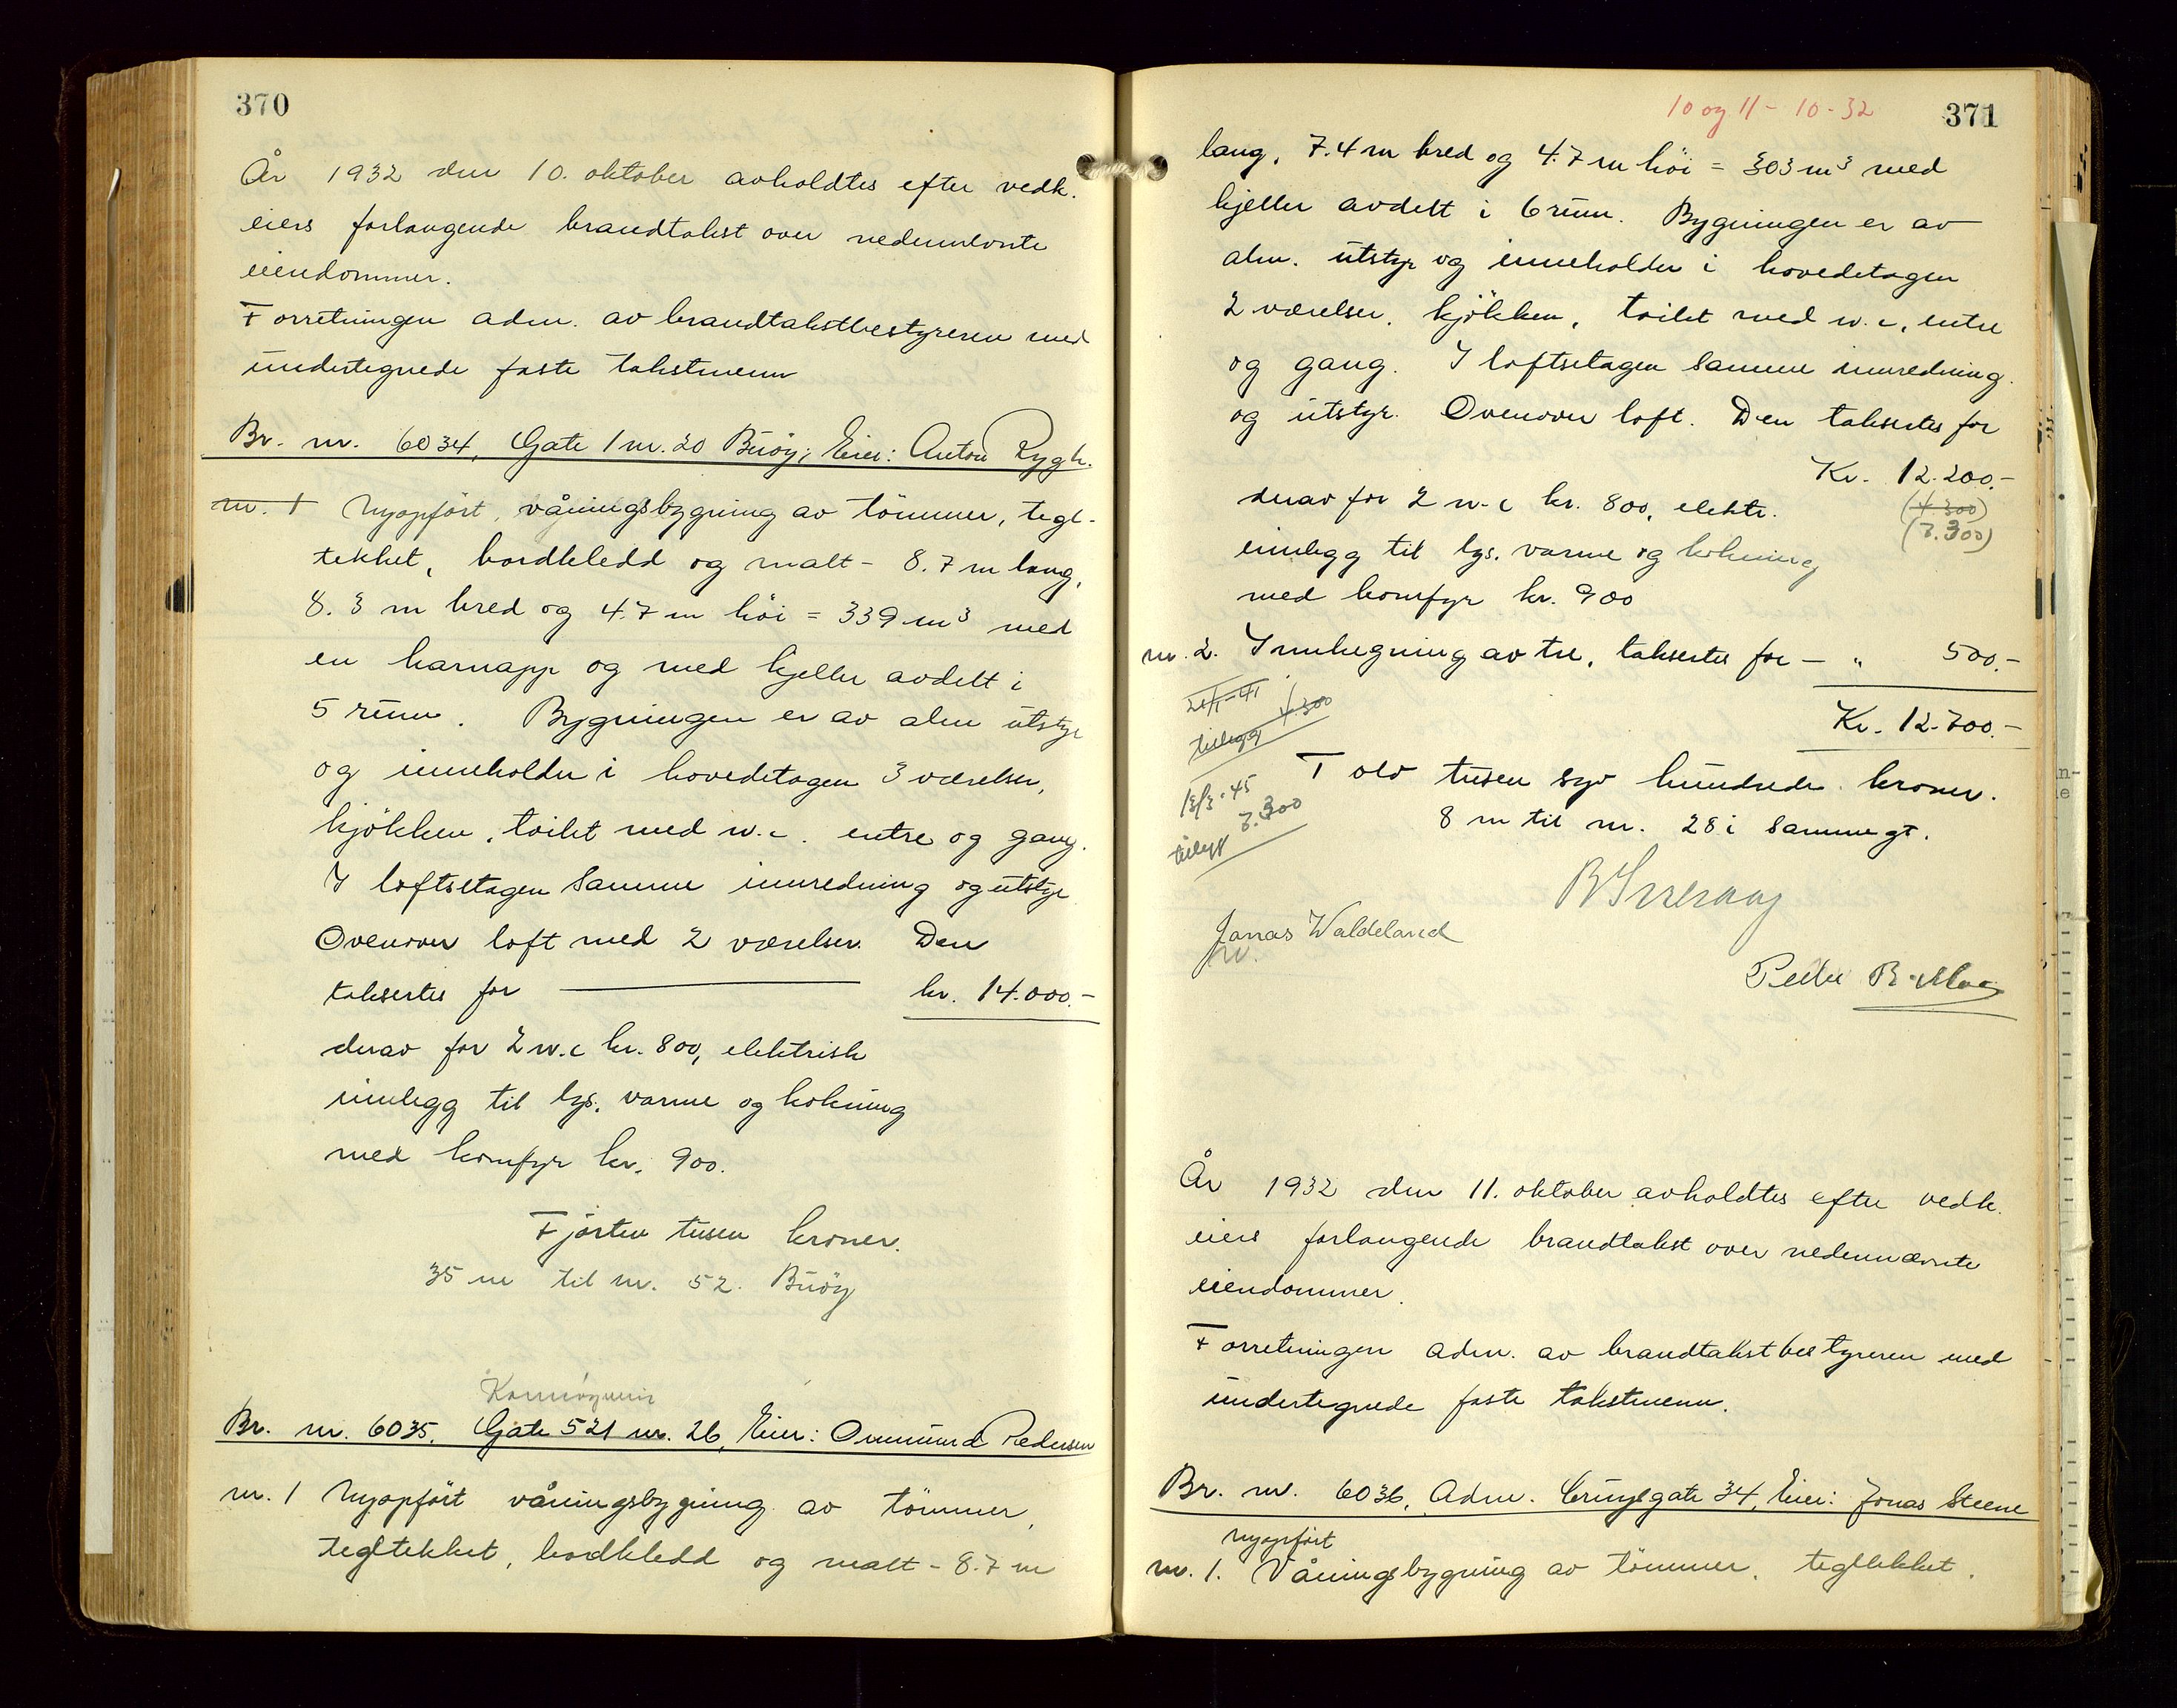 370
År 1932 den 10. oktober avholdtes efter vedk.
eiers forlangende brandtakst over nedennevnte
eiendommer.
Forretningen adm. av brandtakstbestyreren med
undertegnede faste takstmenn
Br. nr. 6034, Gate 1 nr. 20 Buöy; Eier: Anton Rygh.
nr. 1 Nyopfört, våningsbygning av tömmer, tegl-
tekket, bordkledd og malt - 8.7 m lang,
8.3 m bred og 4.7 m höi = 339 m³ med
en karnapp og med kjeller avdelt i
5 rum. Bygningen er av alm utstyr
og inneholder i hovedetagen 3 værelser,
kjökken, toilet med w.c. entre og gang.
I loftsetagen samme innredning og utstyr
Ovenover loft med 2 værelser. Den
taksertes for kr. 14.000.-
derav for 2 w.c kr. 800, elektrisk
innlegg til lys, varme og kokning
med komfyr kr. 900.
Fjorten tusen kroner.
35 m til nr. 52. Buöy
Br. nr. 6035. Gate 521 nr. 26, Eier: Ommund Pedersen
nr. 1 Nyopfört våningsbygning av tömmer,
tegltekket, bordkledd og malt - 8.7 m
10 og 11 - 10 - 32
371
lang, 7.4 m bred og 4.7 m höi = 303 m³ med
kjeller avdelt i 6 rum. Bygningen er av
alm. utstyr og inneholder i hovedetagen
2 værelser, kjökken, toilet med w.c, entre
og gang. I loftsetagen samme innredning
og utstyr. Ovenover loft. Den taksertes for
Kr. 12.200.-
(4 300)
(7.300)
derav for 2 w.c kr. 800, elektr.
innlegg til lys, varme og kokning
med komfyr kr. 900
nr. 2. Innhegning av tre, taksertes for - " 500.-
Kr. 12.700.-
4.300
tillegg
13/3-45
7.300
tillegg
Tolv tusen syv hundrede kroner.
8 m til nr. 28 i samme gt.
Jonas Waldeland
Peder
År 1932 den 11. oktober avholdtes efter vedk.
eiers forlangende brandtakst over nedennævnte
eiendommer.
Forretningen adm. av brandtakstbestyreren med
undertegnede faste takstmenn.
Br. nr. 6036, Adm. Cruysgate 34, Eier: Jonas Steene
nyopfört
nr. 1. Våningsbygning av tömmer, tegltekket,